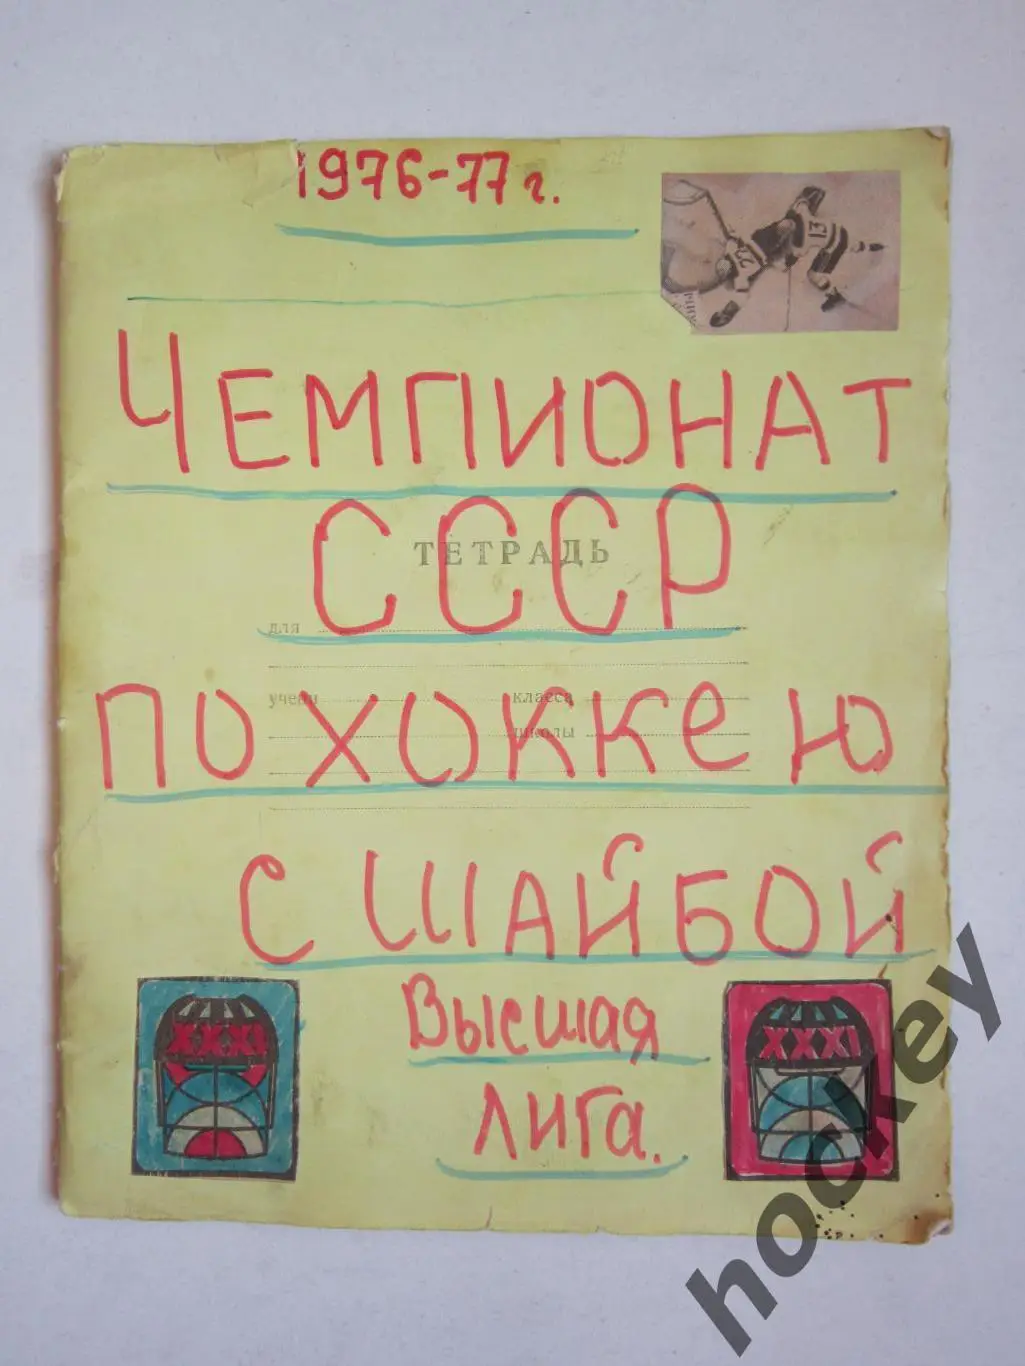 1976-77 г.
22 13
ЧЕМПИОНАТ
СССР
ТЕТРАДЬ
для
ПО ХОККЕЮ
учени класса
школы
С ШАЙБОЙ
XXXI XXXI
Высшая
Лига.
hockey